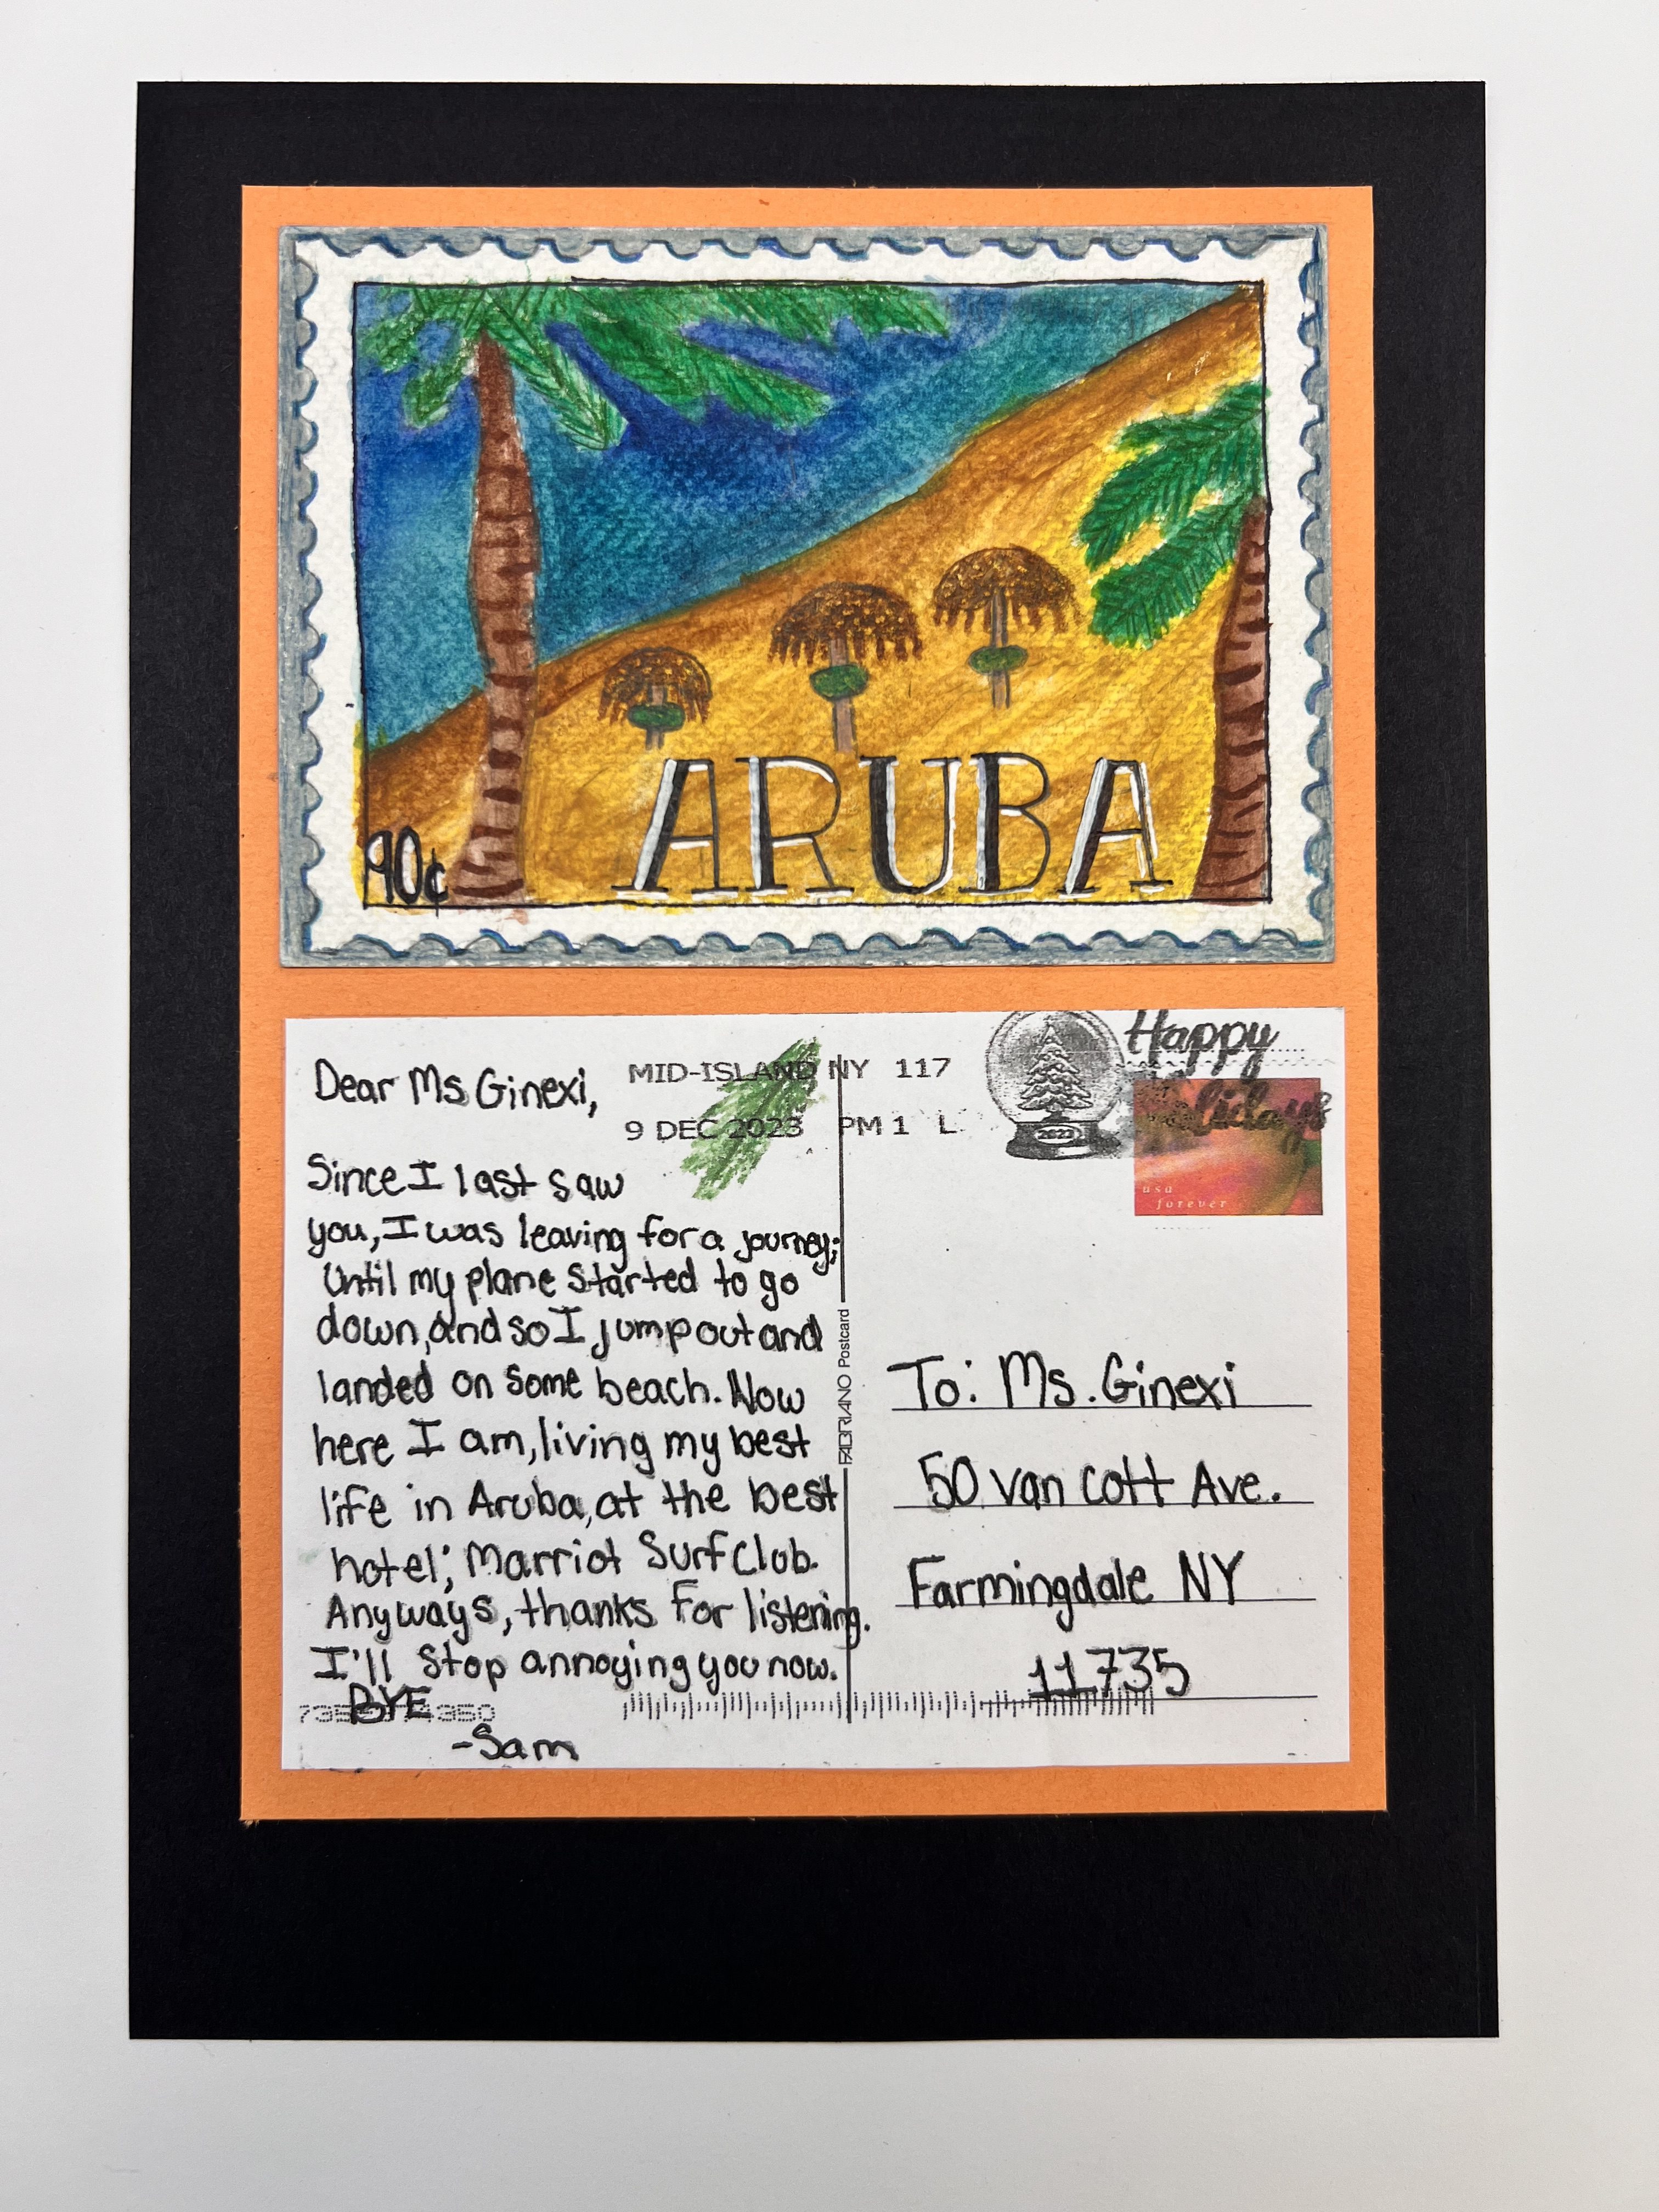 ARUBA
90¢
Dear Ms Ginexi,
Since I last saw
you, I was leaving for a journey;
Until my plane started to go
down, and so I jump out and
landed on some beach. Now
here I am, living my best
life in Aruba, at the best
hotel; Marriot Surf Club.
Anyways, thanks for listening.
I'll stop annoying you now.
BYE
-Sam
MID-ISLAND NY 117
9 DEC 2023 PM 1 L
Happy
Holidays
usa
forever
FABRIANO Postcard
To: Ms. Ginexi
50 Van Cott Ave.
Farmingdale NY
11735